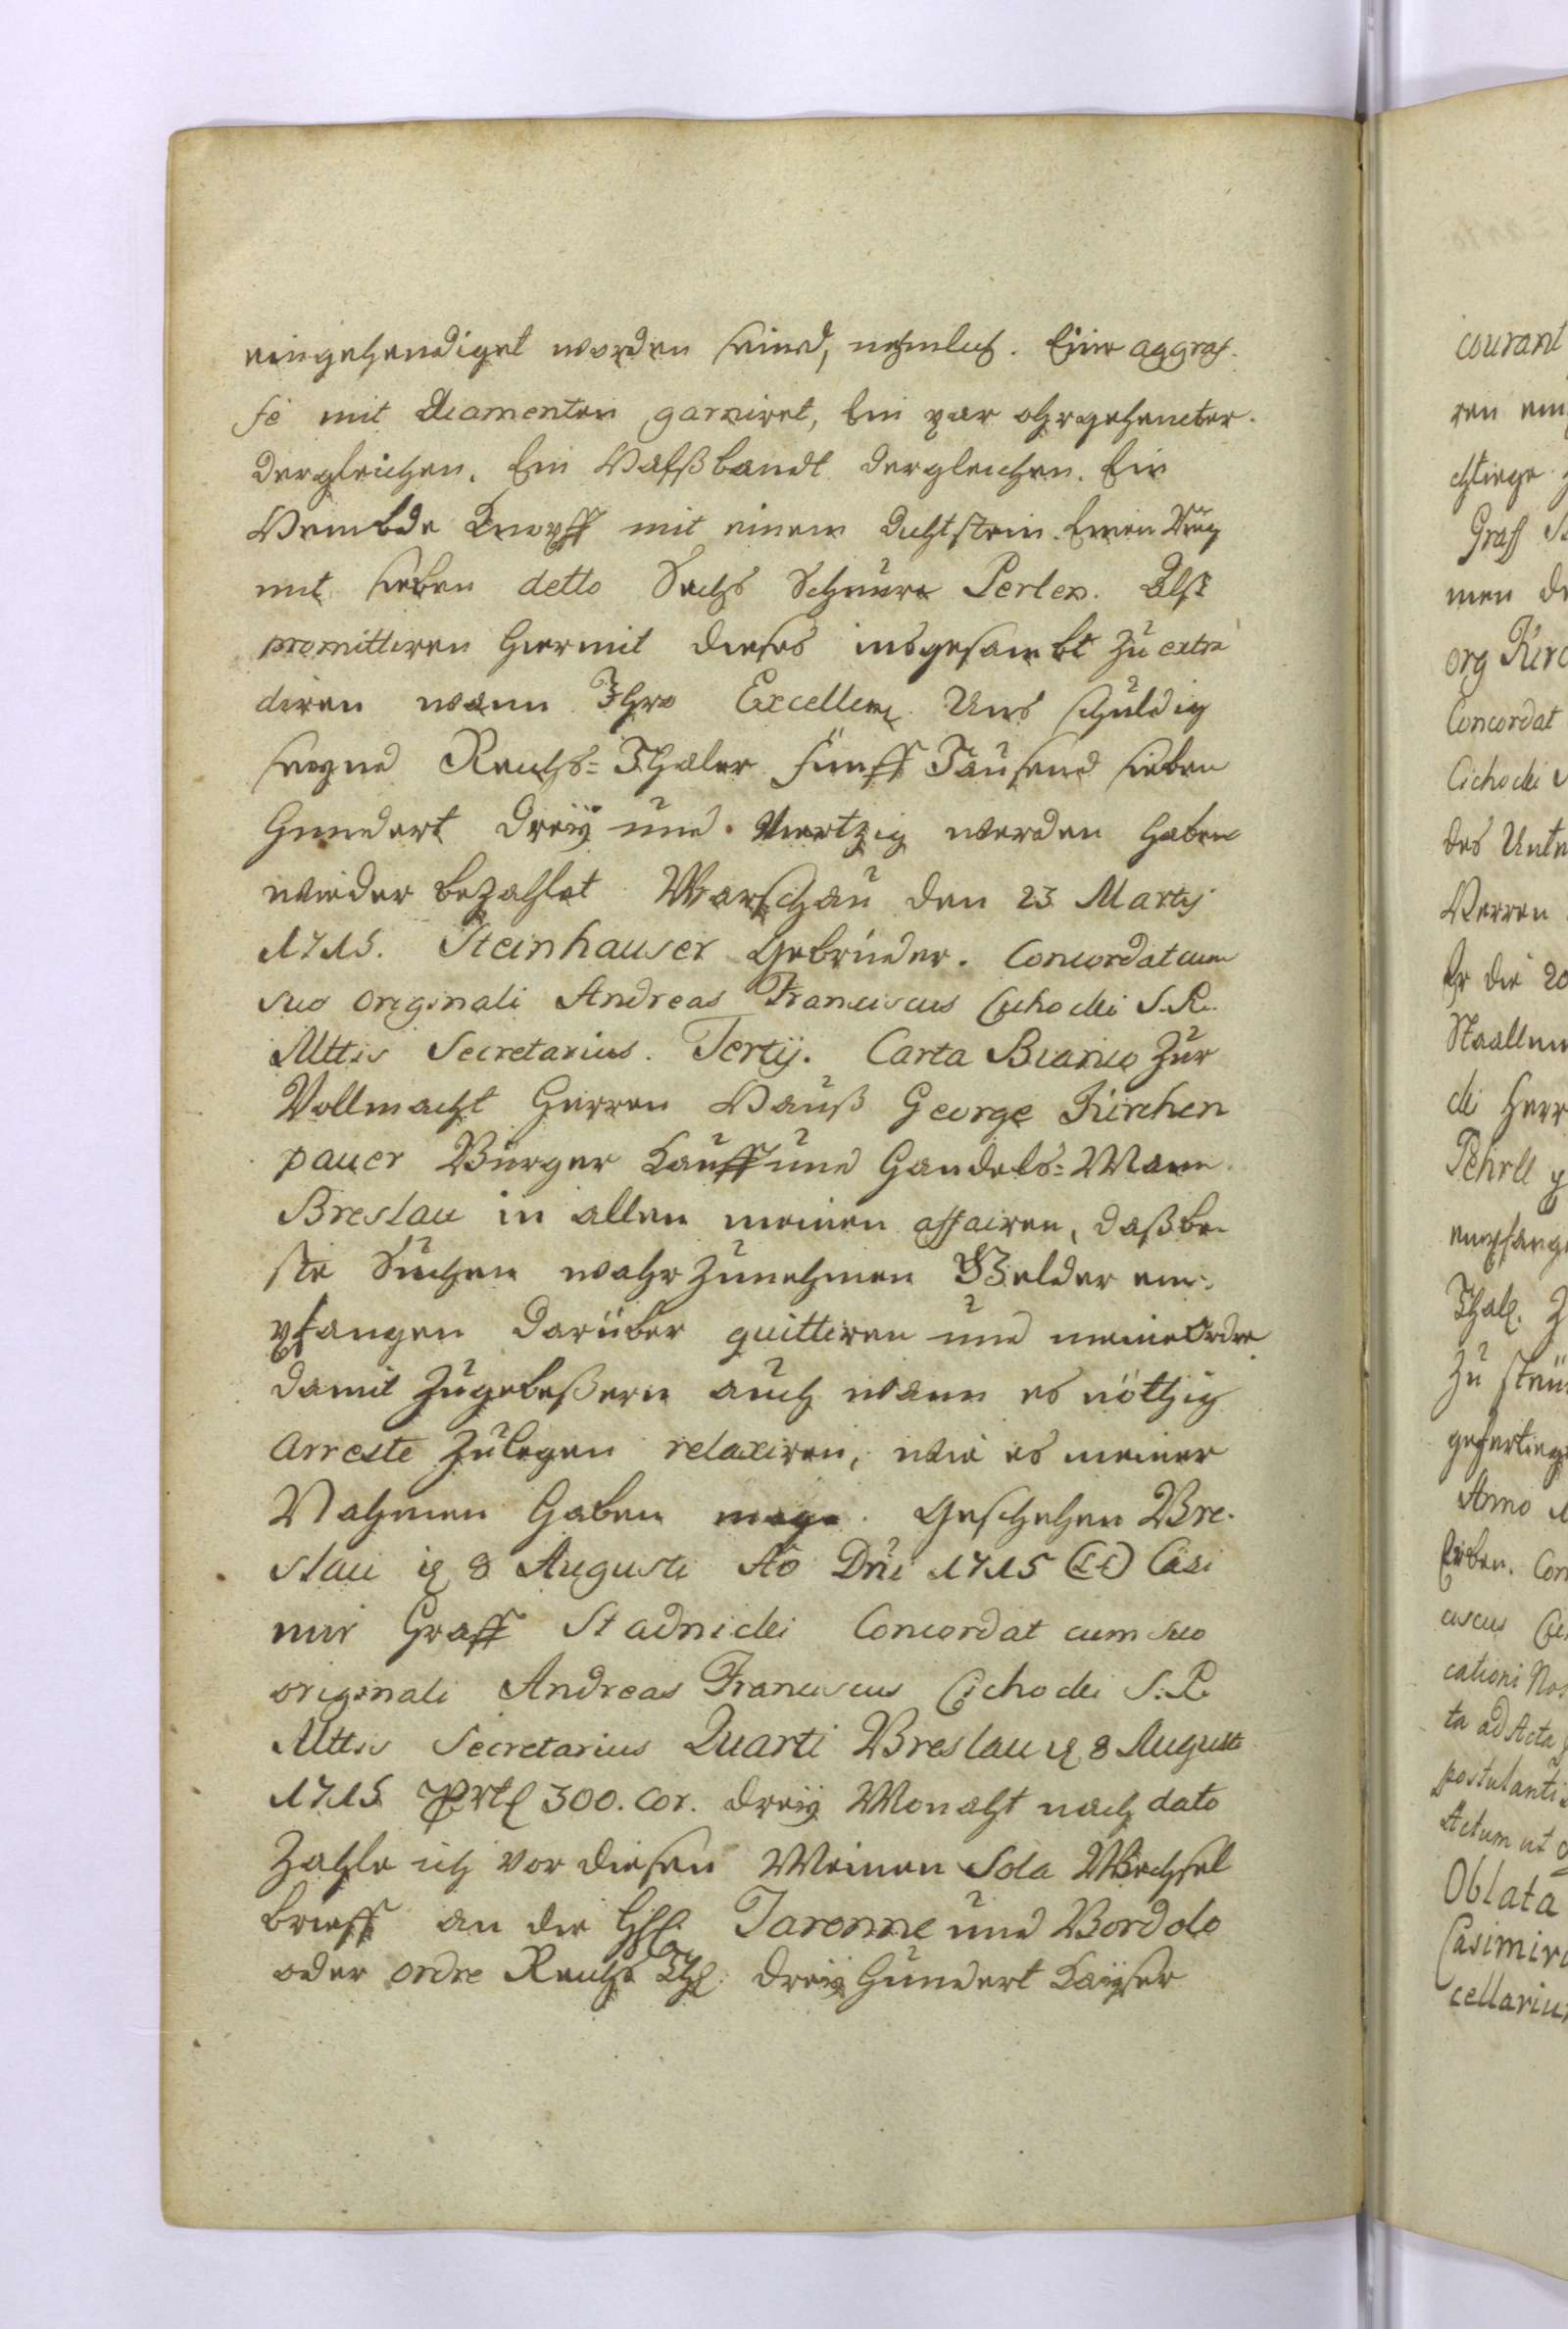 eingehendiget worden seind, nehmlich. Eine aggraf-
fe mit Diamenten garniret, Ein par ohrgehencker
dergleichen. Ein Halßbandt dergleichen. Ein
Hembde Knopff mit einem Dichtstein. Einen Ring
mit sieben detto Sechs Schnure Perlen. Alß
promittiren hiermit dieses insgesambt zu extra
diren wann Ihro Excellenz Uns schuldig
seyne Reichs=Thaler fünff Tausend sieben
Hundert dreÿ und Viertzig werden haben
wieder bezahlet Warschau den 23 Martij
1715. Steinhauser Gebrüder. Concordat cum
suo Originali Andreas Franciscus Cichocki S. R.
Mttis Secretarius. Tertij. Carta Bianco zur
Vollmacht Herren Hanß George Kirchen
pauer Bürger Kauff und Handels=Mann
Breslau in allen meinen affairen, daß be-
ste Suchen wahr zunehmen Gelder em-
pfangen darüber quittiren und meine Ordre
damit zugebeßern auch wann es nöthig
Arreste zulegen relaxiren, wie es meiner
Nahmen haben mage. Geschehen Bre-
slau 8 Augusti Ao Dni 1715 Casi
mir Graff Stadnicki Concordat cum suo
originali Andreas Franciscus Cichocki S. R.
Mttis Secretarius Quarti Breslau 8 Augusti
1715 300. Cor. dreÿ Monaht nach dato
Zahle ich vor diesen Meinen Sola Wechsel
brieff an die Taronne und Bordolo
oder ordre Reichs Thl dreÿ Hundert Kaÿser
courant
ren ein
Graff
men
org Kirc
Concordat
Cichocki
des Unte
Herren
Er die 20
Herr
empfang
Thal.
zu
Anno
cationi Nos
ta ad Acta
postulanti
Actum ut
Oblata
Casimir
cellariu